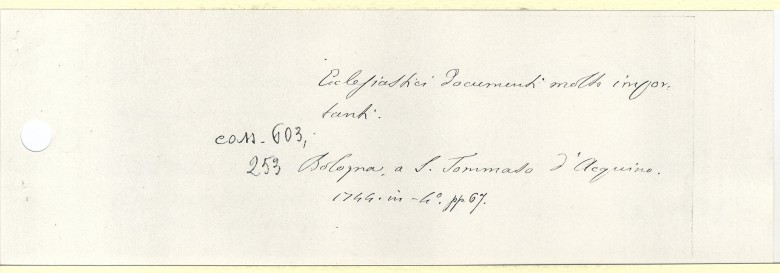 Ecclesiastici Documenti molto impor-
tanti.
COM. 603,
253 Bologna, a S. Tommaso d'Acquino.
1744. in-4°. pp 67.